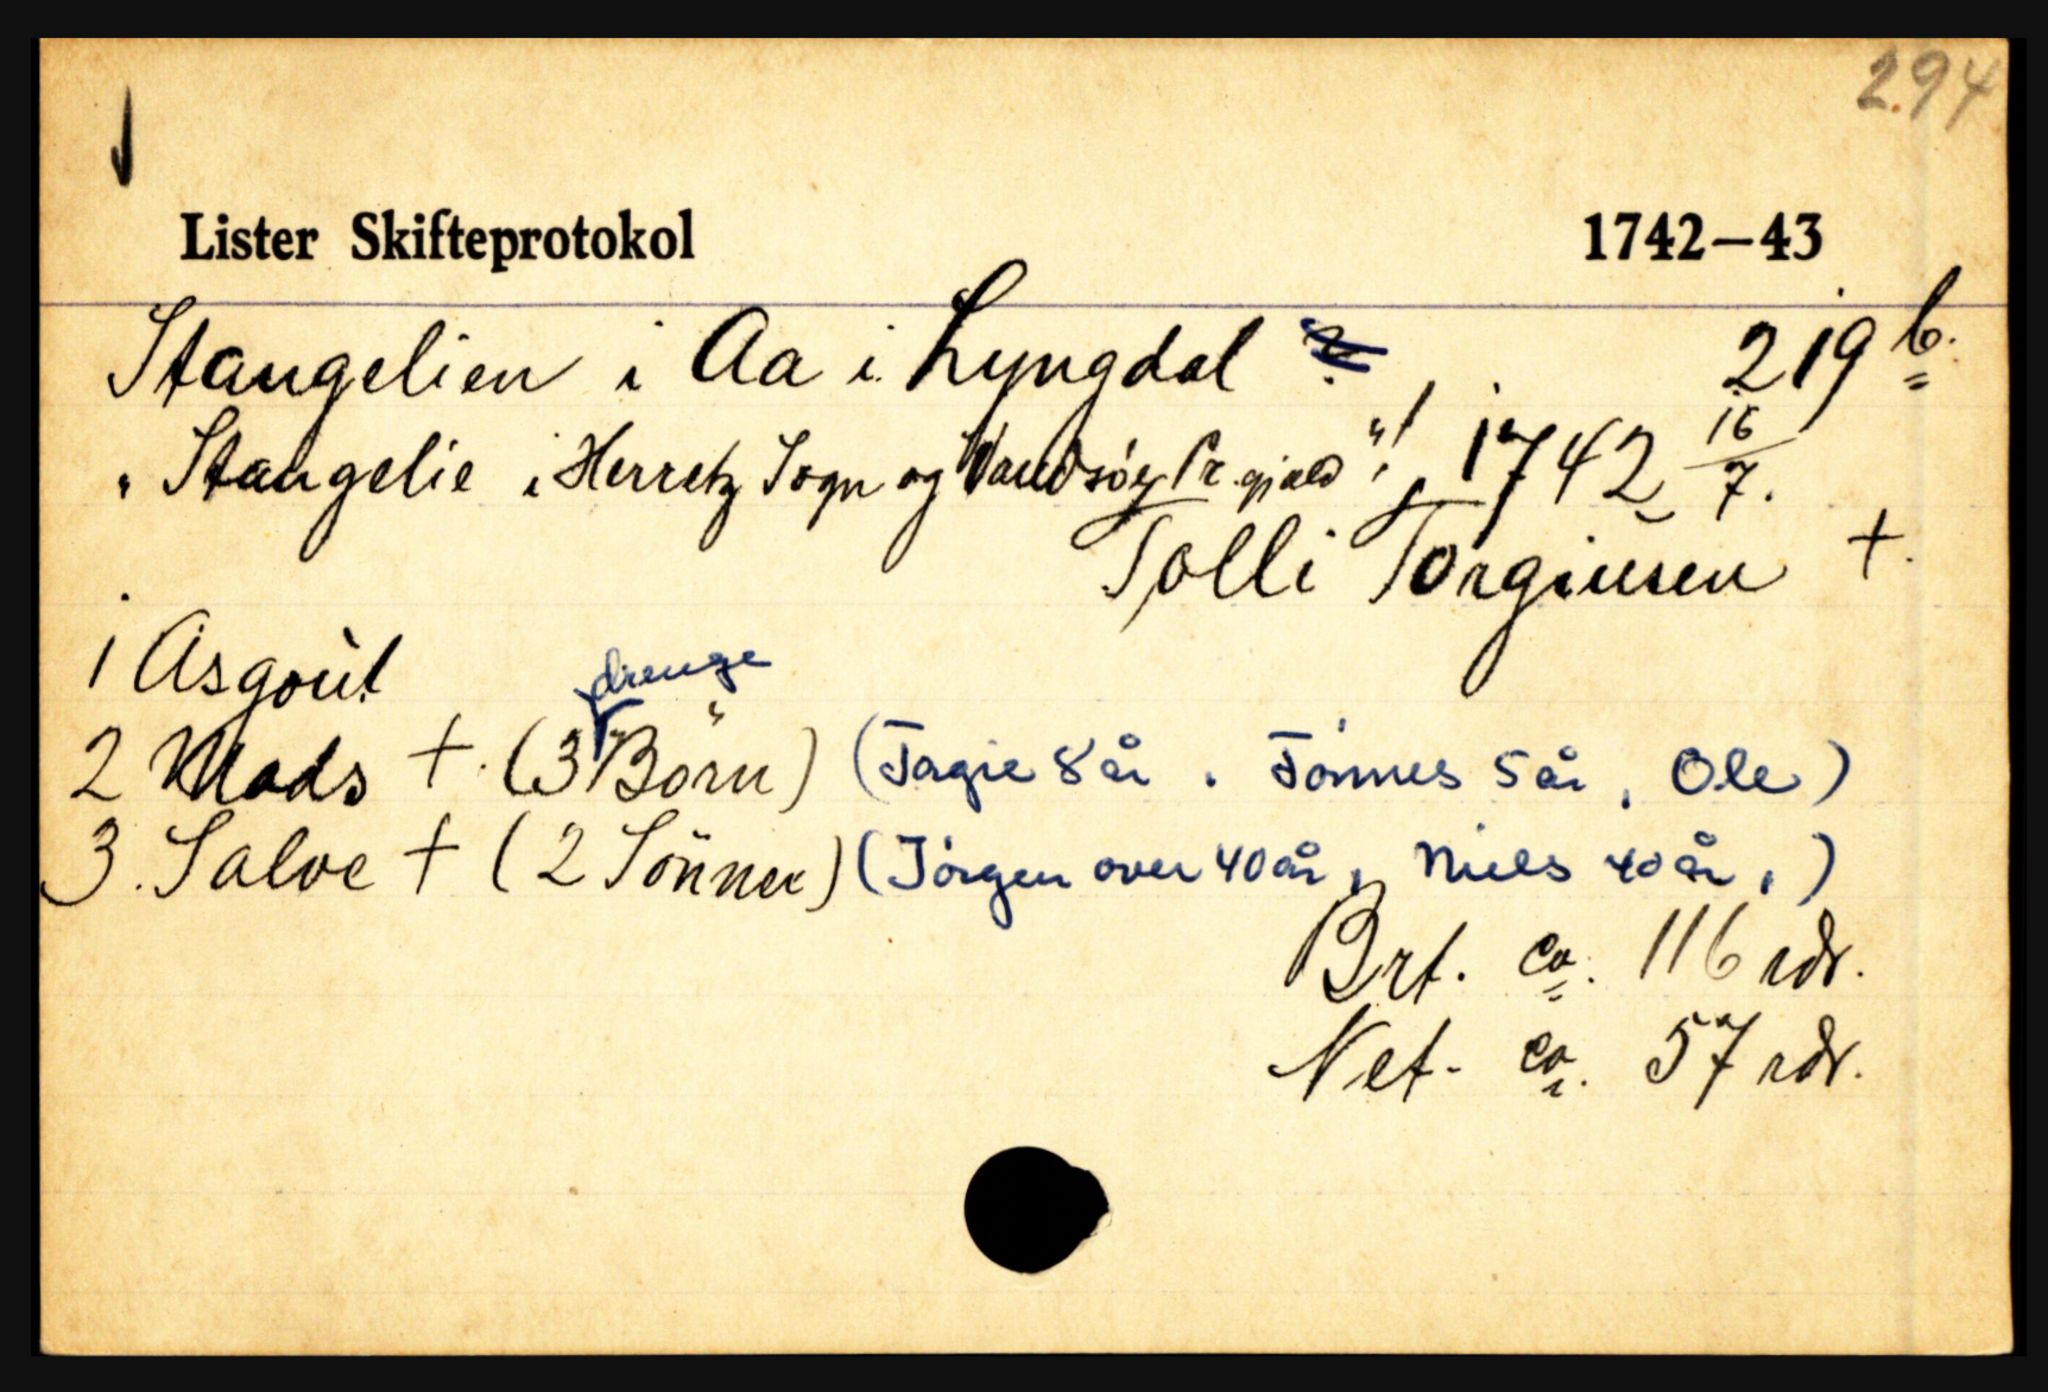 294
Lister Skifteprotokol 1742–43
Stangelien i Aa i Lyngdal 219 b.
"Stangelie i Herretz Sogn og Vandsöe Pr.gjæld"! 1742 16/7.
Tolli Torgiusen +.
1 Asgout
drenge
2 Mads +. (3 Börn) (Tagie 8 år. Tönnes 5 år, Ole)
3. Salve + (2 Sönner) (Jörgen over 40 år, Niels 40 år,)
Brt. ca. 116 rdr.
Net. ca. 57 rdr.